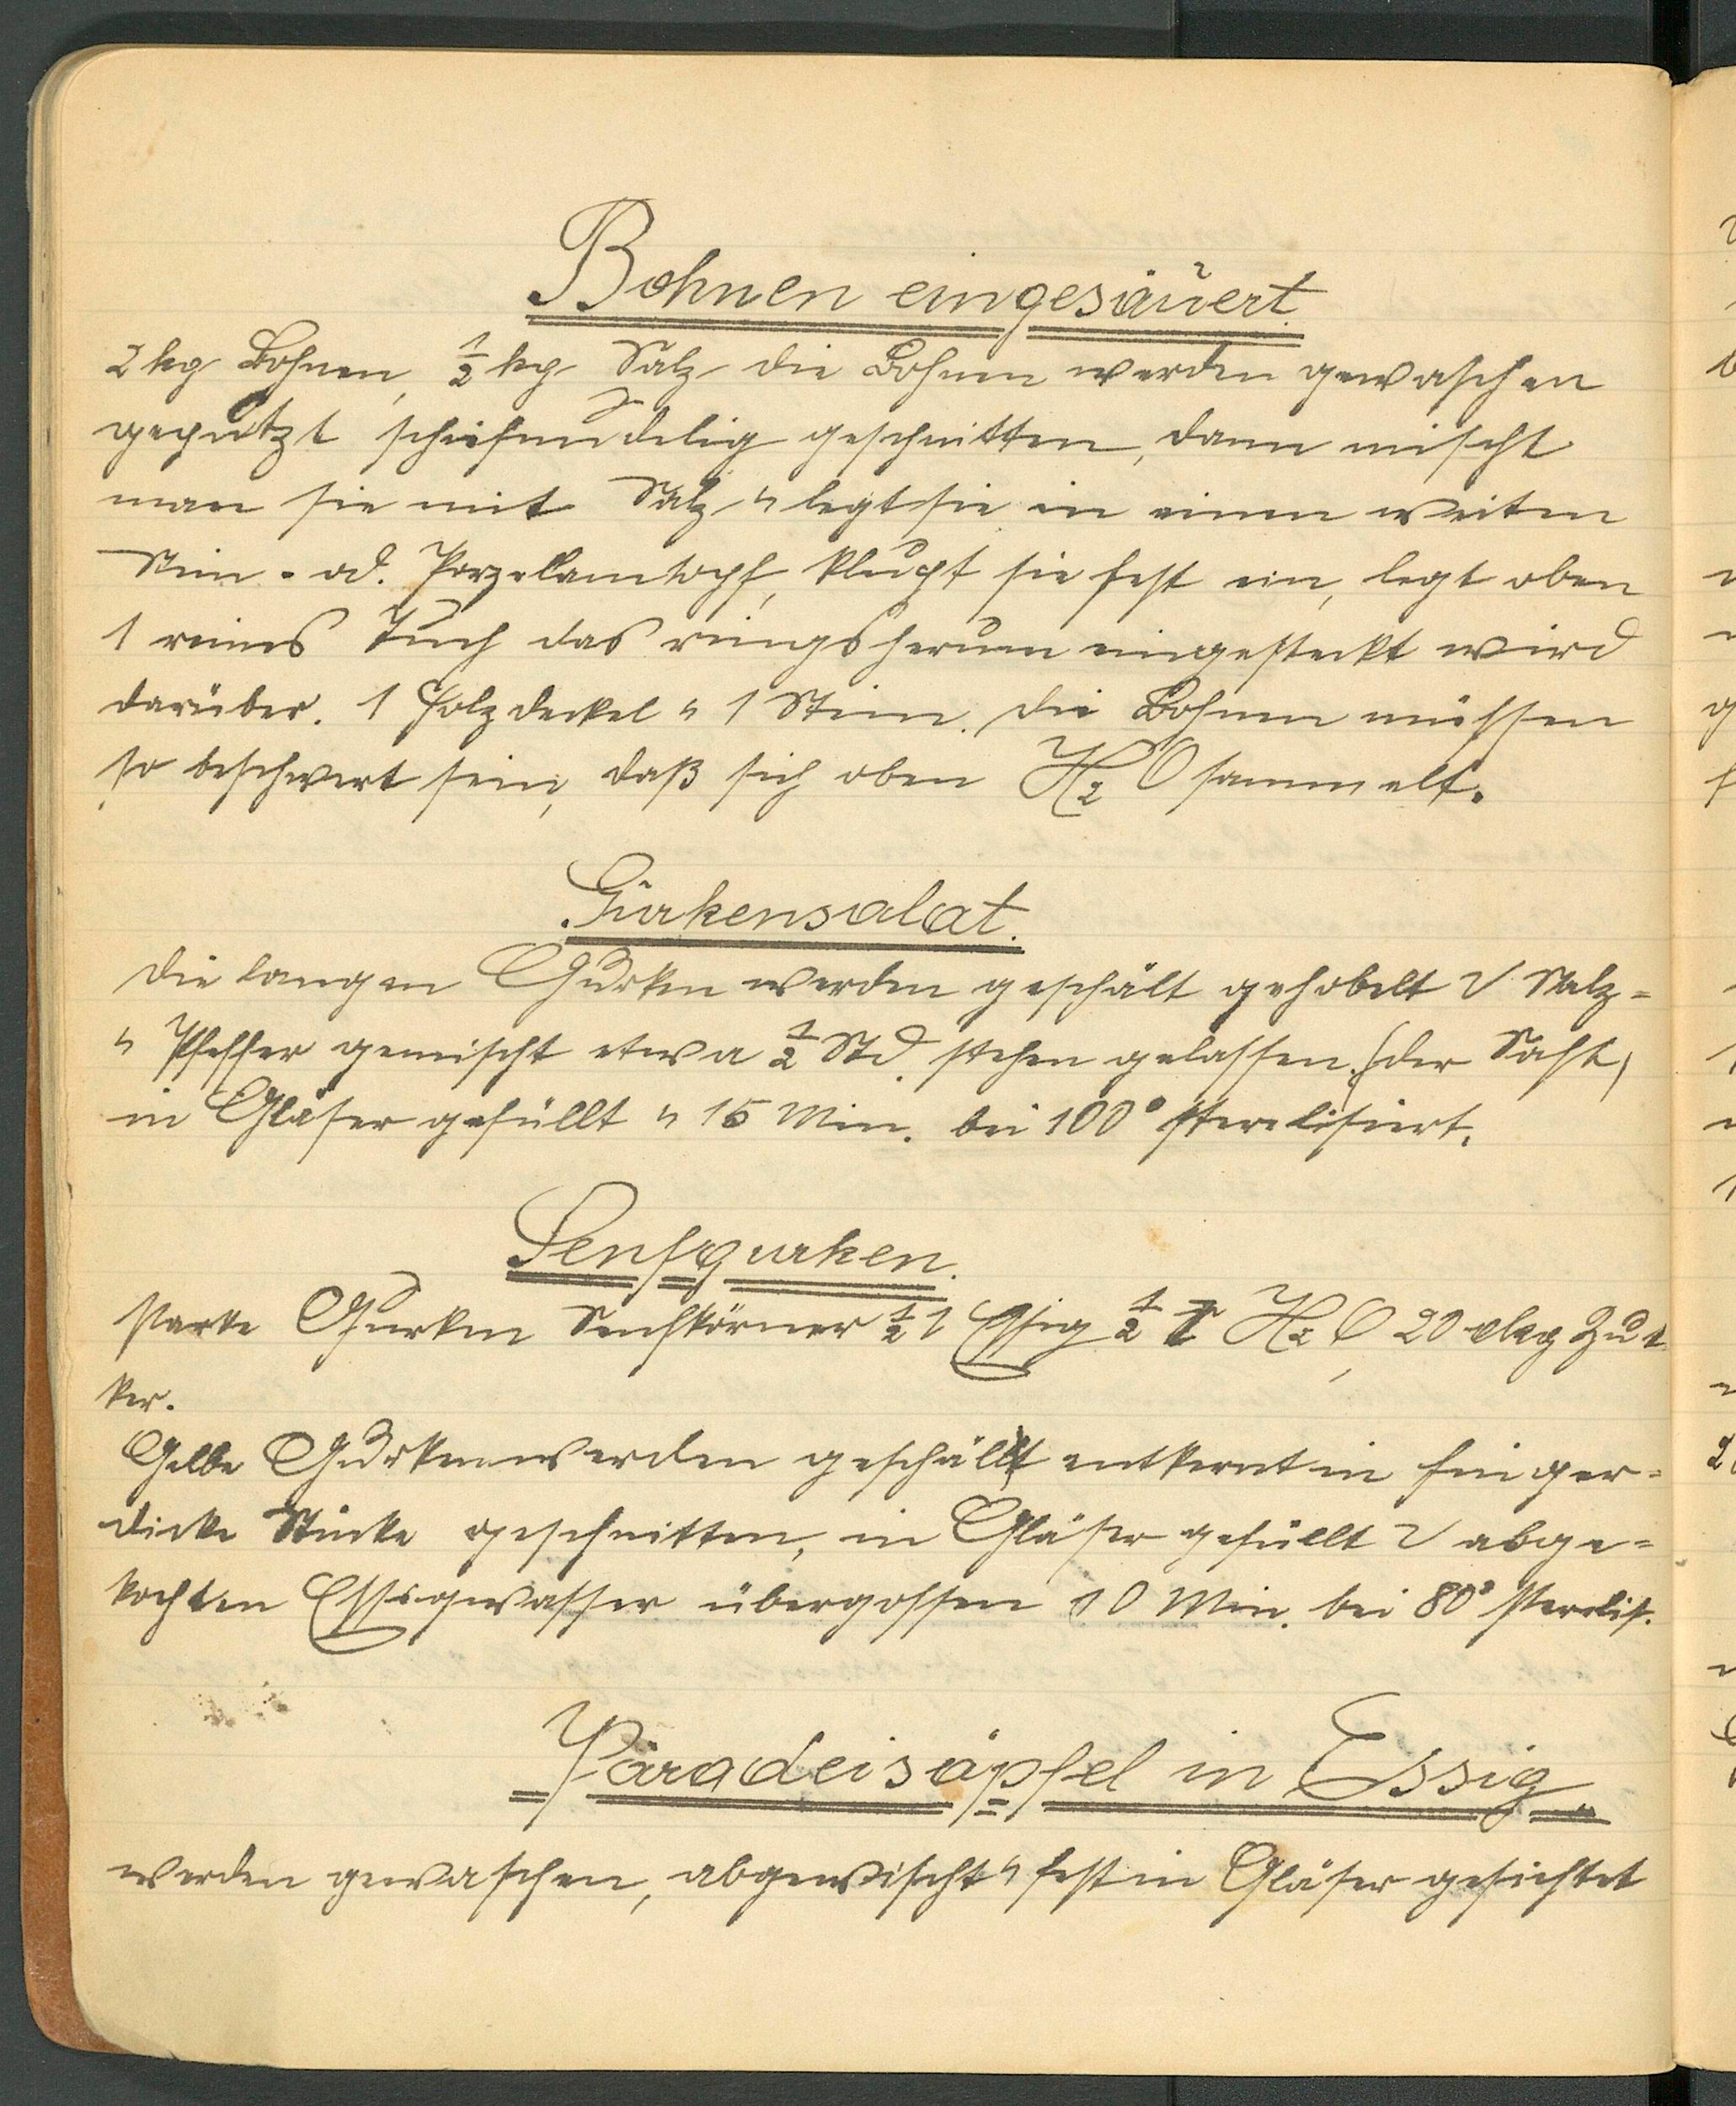 Bohnen eingesäuert.
2 kg Bohnen, ½ kg Salz die Bohnen werden gewaschen
geputzt schiefnudelig geschnitten, dann mischt
man sie mit Salz u legt sie in einen weiten
Stein- od. Porzelamtopf, klupft sie fest ein, legt oben
1 reines Tuch das ringsherum eingesteckt wird
darüber. 1 Holzdeckel u 1 Stein. Die Bohnen müssen
so beschwert sein, daß sich oben H₂O sammelt.
Gurkensalat.
Die langen Gurken werden geschält gehobelt Salz-
u Pfeffer gemischt etwa ½ Std. stehen gelassen (der Saft)
in Gläser gefüllt u 15 Min. bei 100° sterelisiert.
Senfgurken.
Starke Gurken Senfkörner ½ l Essig ½ l H₂O 20 dkg Zuc
ker.
Gelbe Gurken werden geschält entkernt in finger-
dicke Stücke geschnitten, in Gläser gefüllt abge-
kochten Essigwasser übergossen 10 Min. bei 80° sterelis.
Paradeisäpfel in Essig.
werden gewaschen, abgewischt u fest in Gläser gesichtet